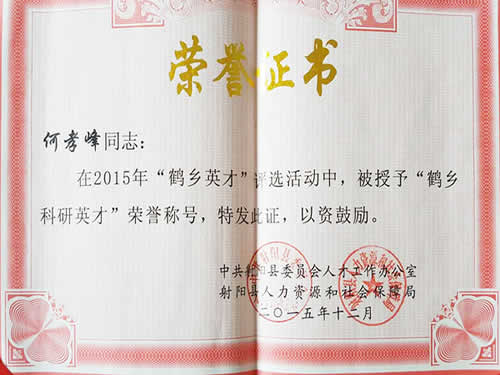 荣誉证书
何孝峰同志：
在2015年“鹤乡英才”评选活动中，被授予“鹤乡
科研英才”荣誉称号，特发此证，以资鼓励。
中共射阳县委员会人才工作办公室
射阳县人力资源和社会保障局
二〇一五年十二月